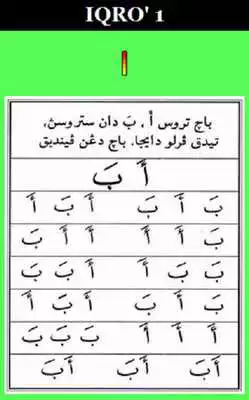 IQRO' 1
باچ تروس أَ ، بَ دان ستروسڽ،
تيدق ڤرلو دايجا. باچ دڠن ڤينديق
أَ بَ
بَ أَ بَ أَ بَ أَ
بَ أَ أَ أَ أَ بَ
بَ بَ أَ أَ بَ بَ
بَ أَ بَ أَ بَ أَ
أَ أَ أَ بَ بَ بَ
أَبَ أَبَ أَبَ